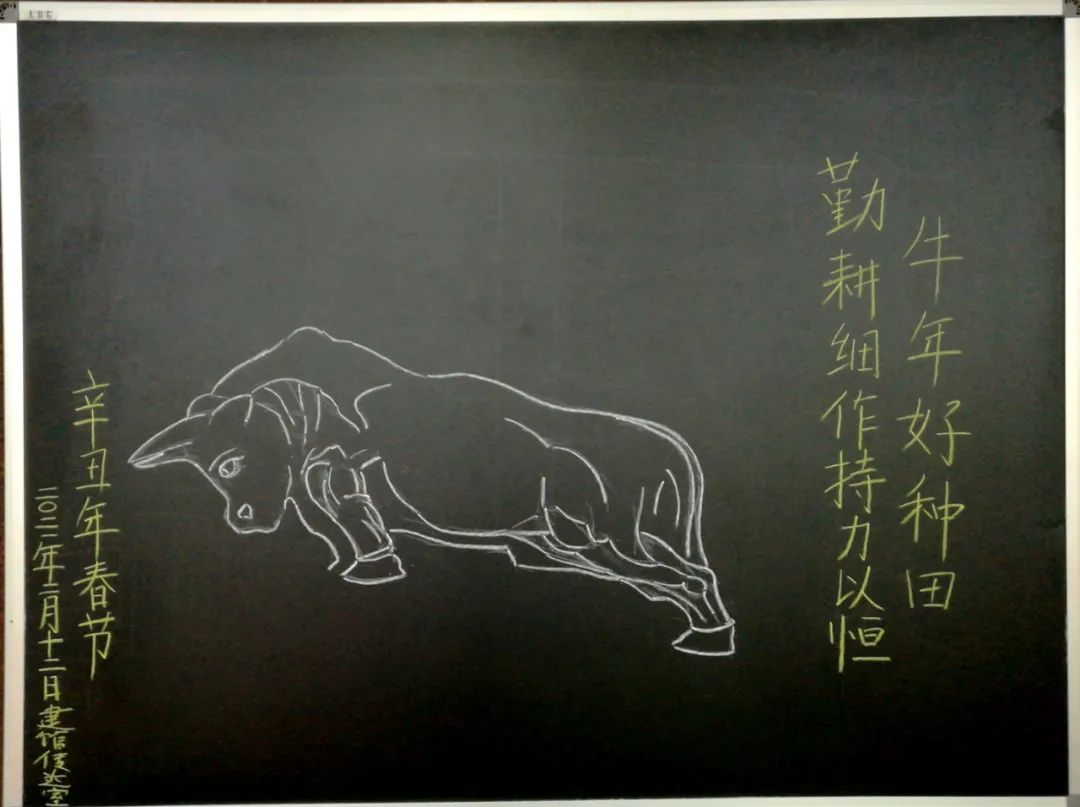 牛年好种田
勤耕细作持力以恒
辛丑年春节
二〇二一年二月十二日建馆传达室